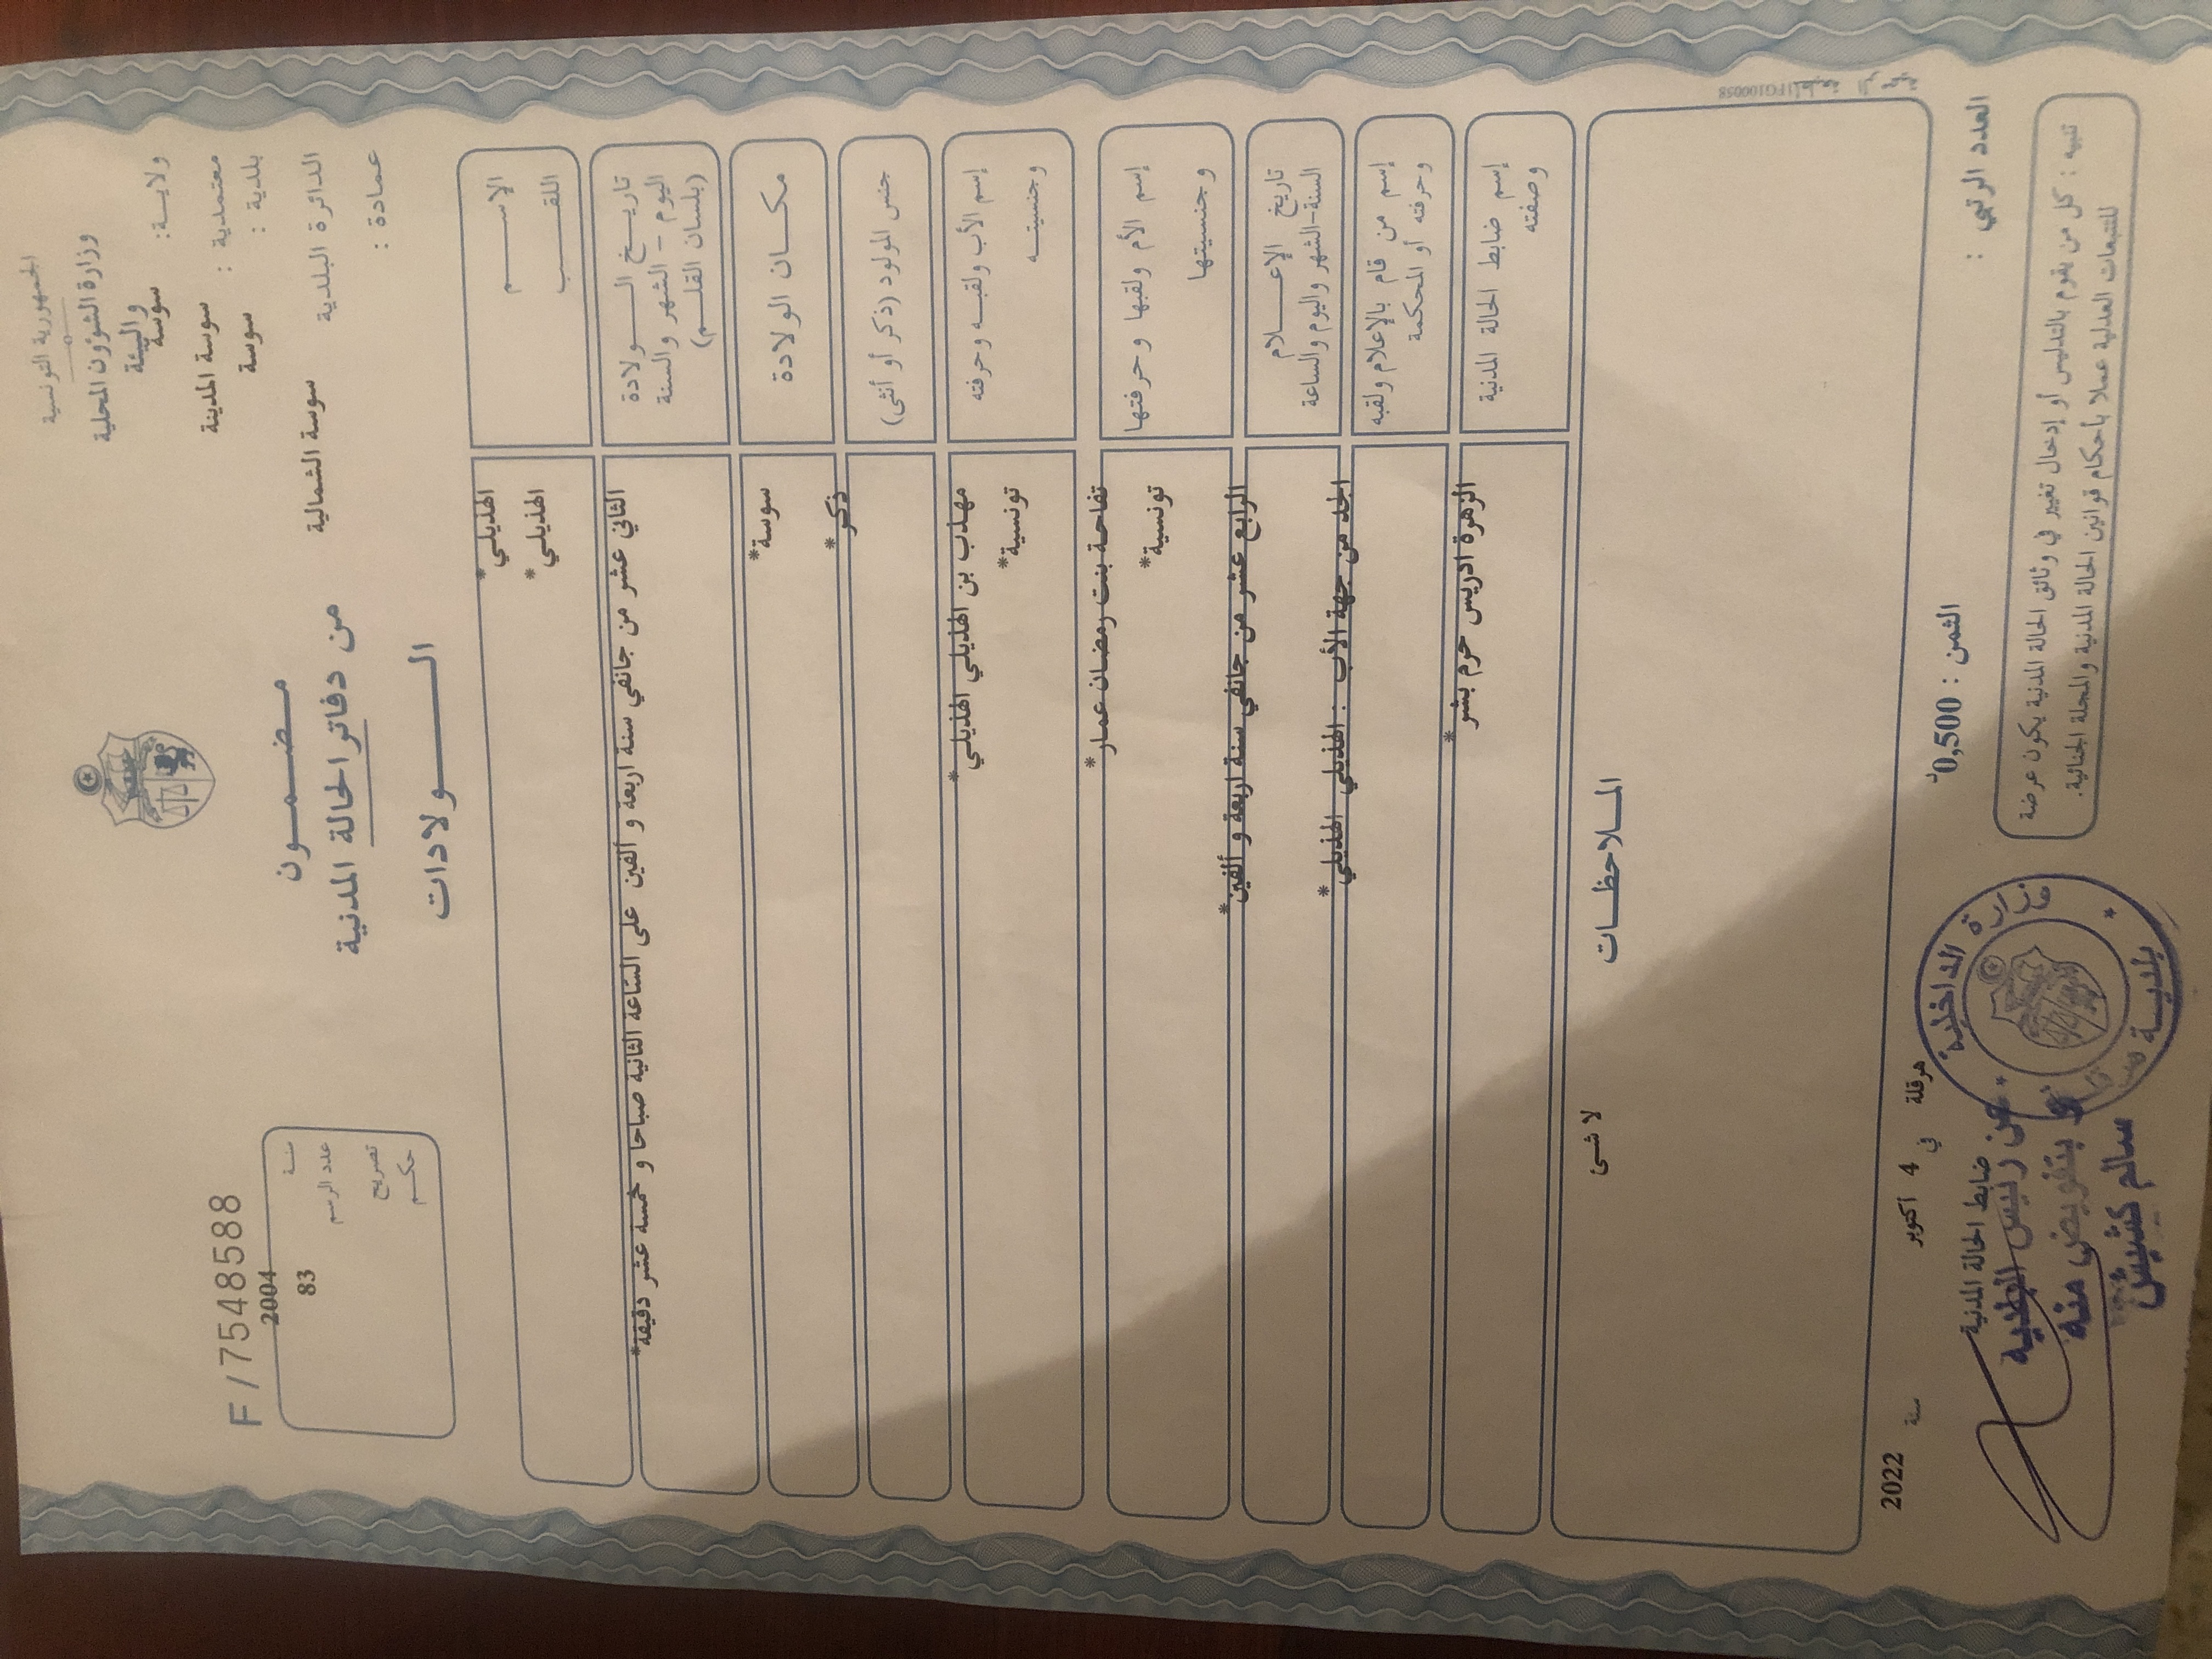 الجمهورية التونسية
وزارة الشؤون المحلية
والبيئة
ولايـــة: سوسة
معتمدية : سوسة المدينة
بلدية : سوسة
الدائرة البلدية سوسة الشمالية
عمادة :
مـضـمـــون
من دفاتر الحالة المدنية
الــــولادات
F/7548588
سنة 2004
عدد الرسم 83
تصريح
حكـــم
الإســـم الهذيلي*
اللقـــب الهذيلي*
تاريـــخ الـــــولادة
اليوم - الشهر والسنة
(بلسان القلـــم)
الثاني عشر من جانفي سنة اربعة و ألفين على الساعة الثانية صباحا و خمسة عشر دقيقة*
مكـــان الولادة سوسة*
جنس المولود (ذكر أو أنثى) ذكر*
إسم الأب ولقبـــه وحرفته مهذب بن الهذيلي الهذيلي*
وجنسيتـــه تونسية*
إسم الأم ولقبها وحرفتها تفاحة بنت رمضان عمار*
وجنسيتها تونسية*
تاريخ الإعـــــلام
السنة-الشهر واليوم والساعة
الرابع عشر من جانفي سنة اربعة و ألفين*
إسم من قام بالإعلام ولقبه
وحرفته أو المحكمة
الجد من جهة الأب : الهذيلي الهذيلي*
إسم ضابط الحالة المدنية
وصفته
الزهرة ادريس حرم بشر*
المـــلاحظـــات
لا شئ
العدد الرتبي :
الثمن : 0,500د
هرقلة في 4 أكتوبر سنة 2022
ضابط الحالة المدنية
تنبيه : كل من يقوم بالتدليس أو إدخال تغيير في وثائق الحالة المدنية يكون عرضة
للتتبعات العدلية عملا بأحكام قوانين الحالة المدنية والمجلة الجنائية.
عن رئيس البلدية
و بتفويض منه
سالم كشيش
وزارة الداخلية
بلديـــة